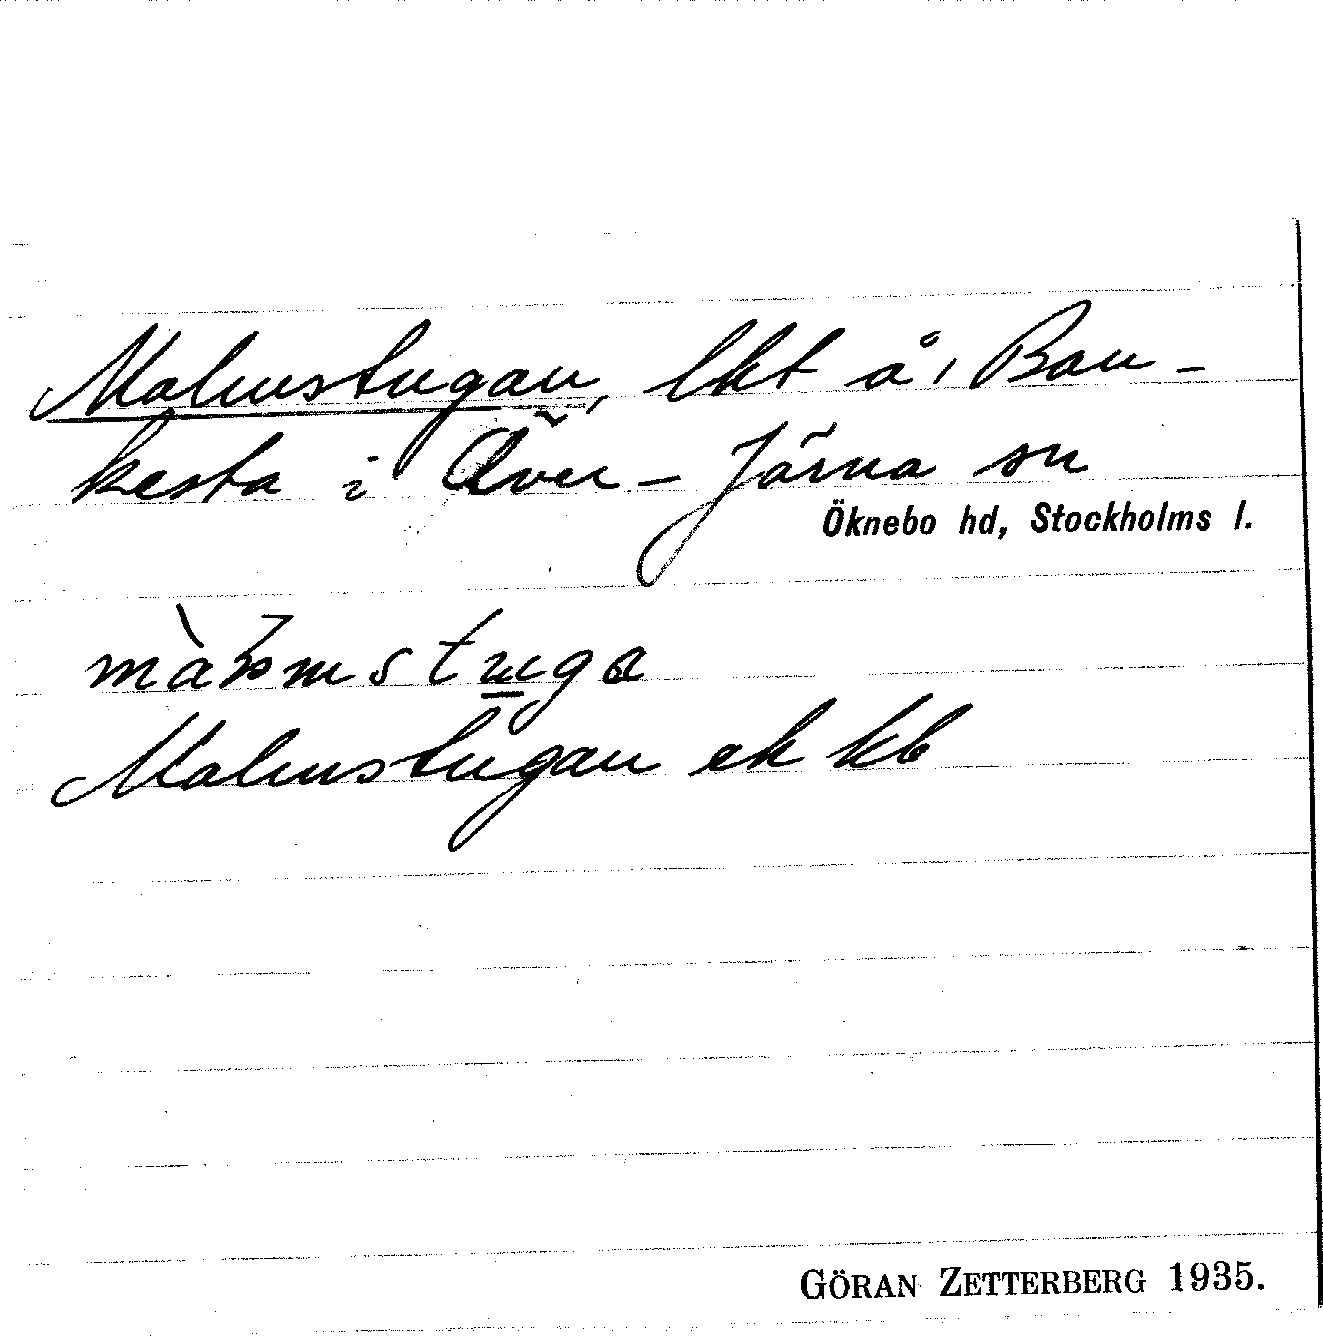 Malmstugan, lht å, Ban-
kesta i Över-Järna sn
Öknebo hd, Stockholms l.
Malmstugan ek kb
GÖRAN ZETTERBERG 1935.